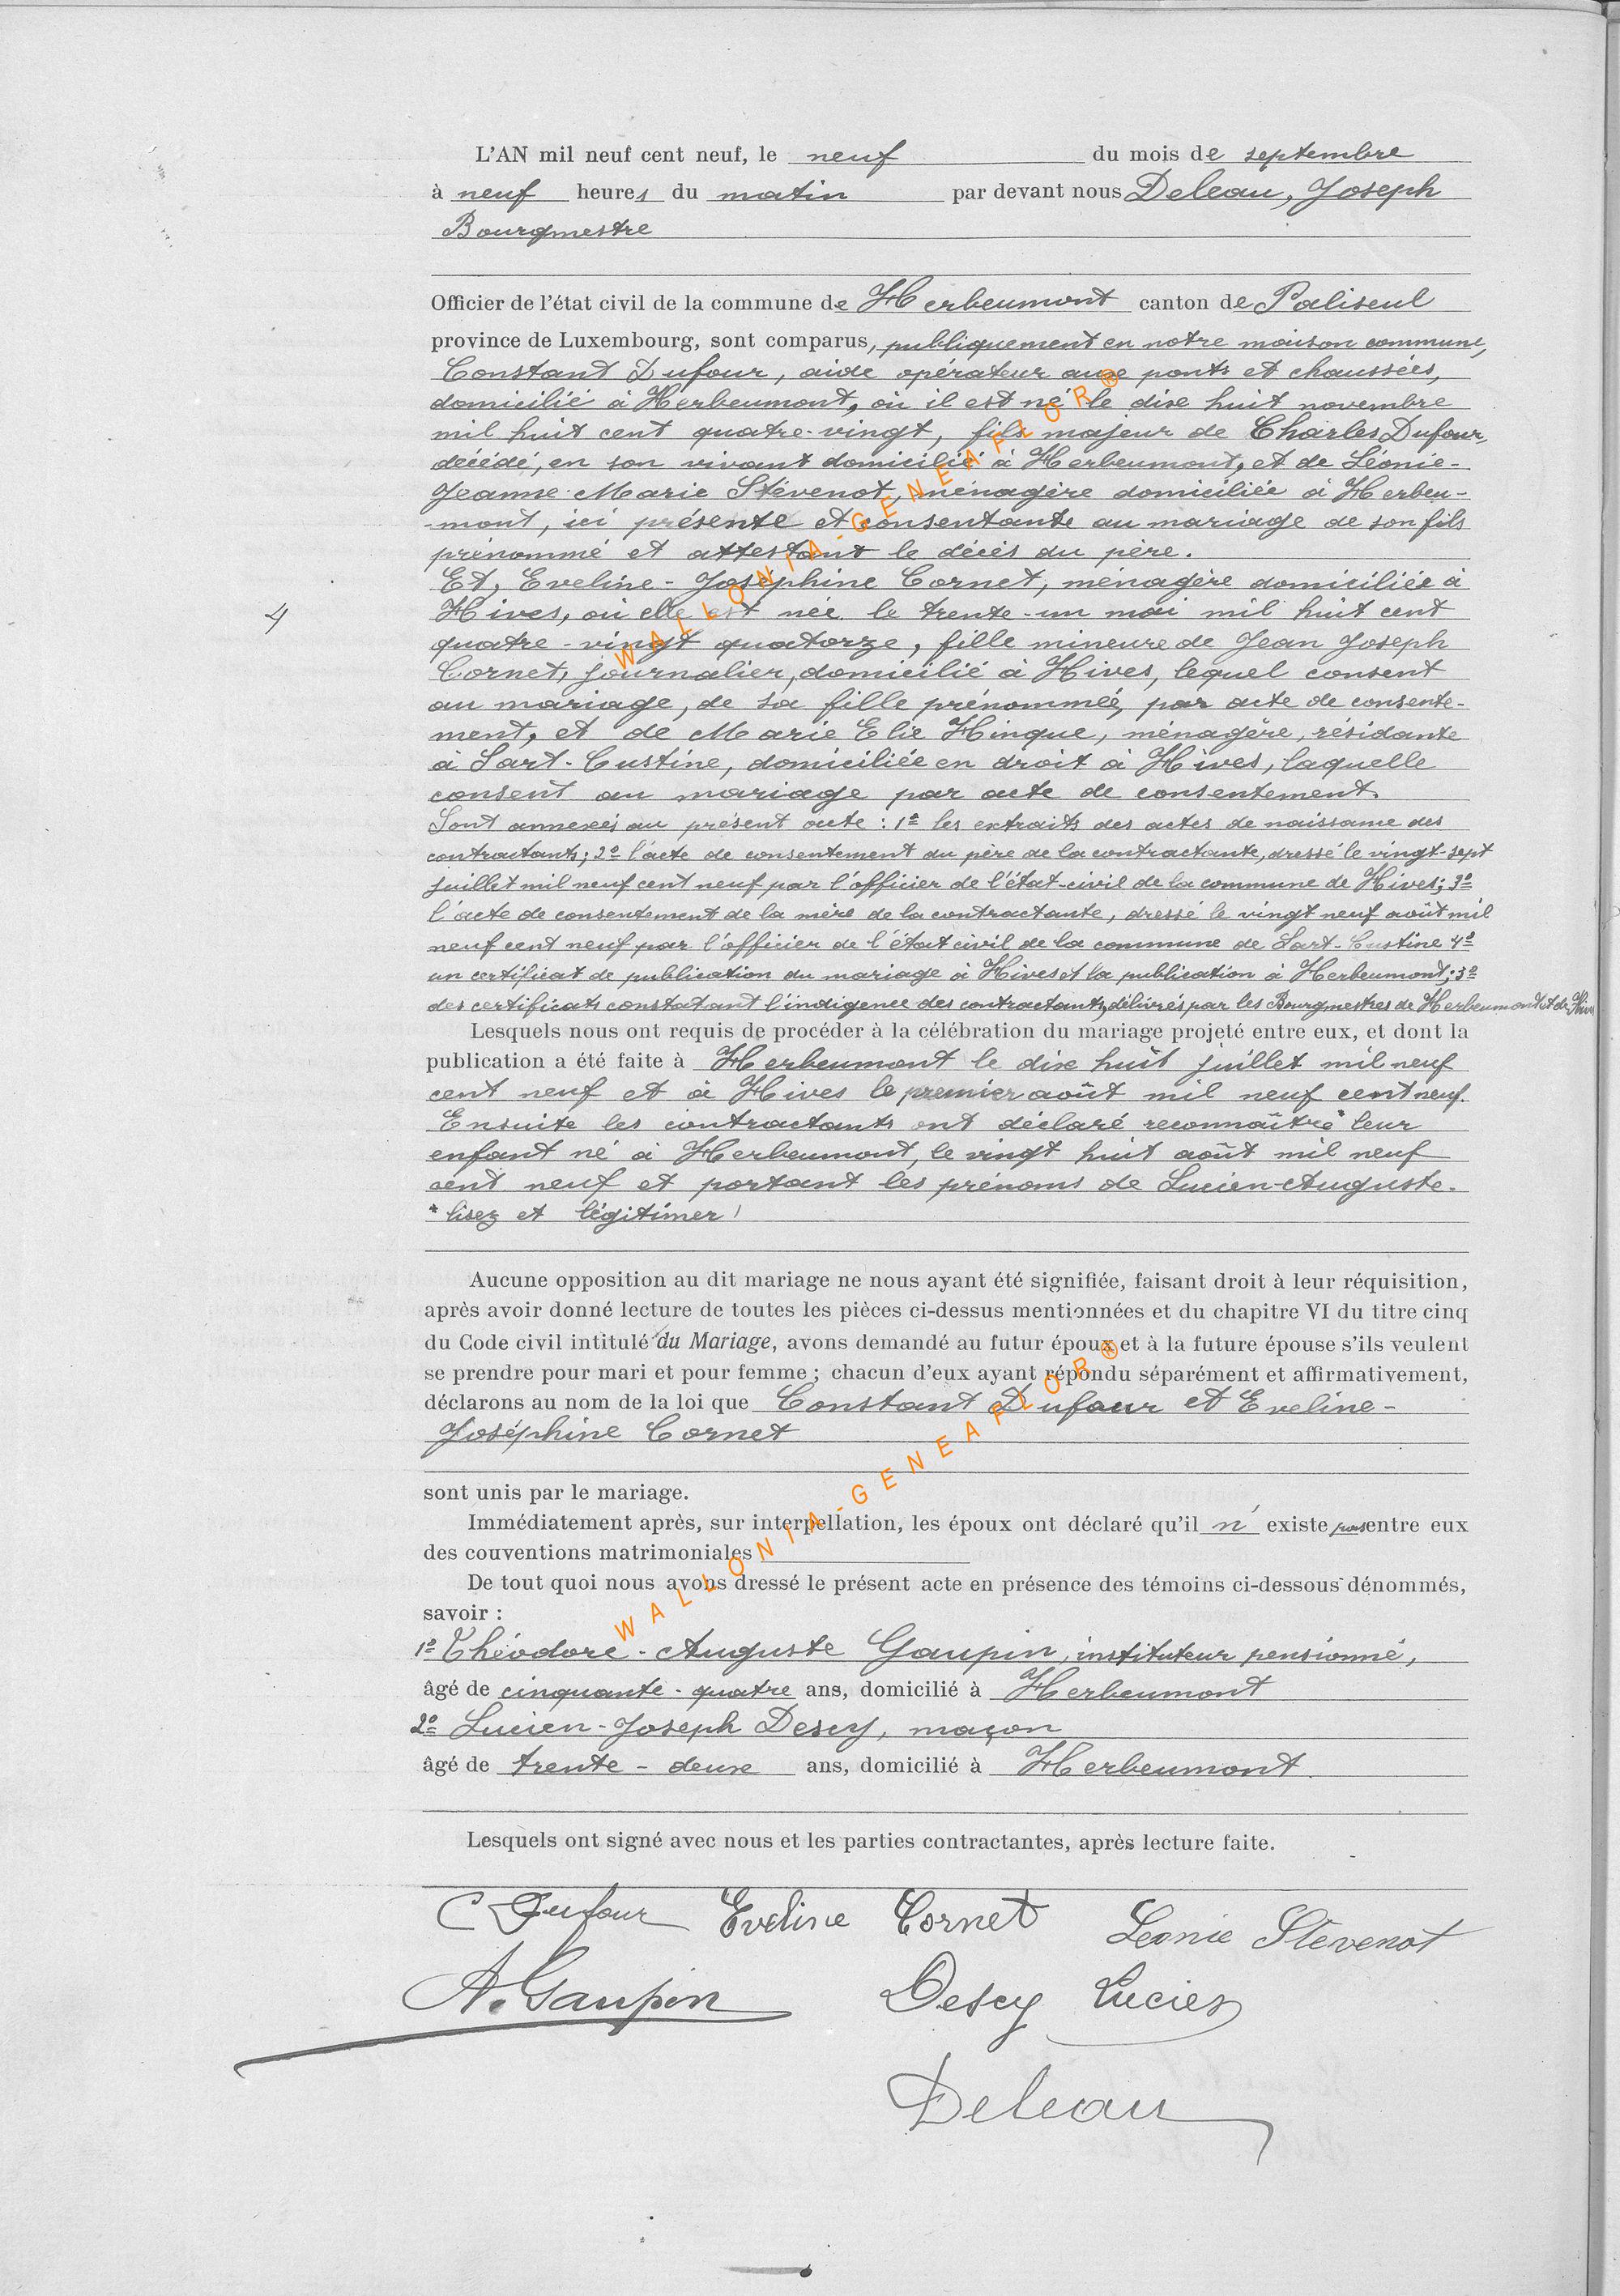 L'AN mil neuf cent neuf, le neuf du mois de septembre
à neuf heures du matin par devant nous Deleau, Joseph
Bourgmestre
Officier de l'état civil de la commune de Herbeumont canton de Paliseul
province de Luxembourg, sont comparus, publiquement en notre maison commune,
Constant Dufour, aide opérateur aux ponts et chaussées,
domicilié à Herbeumont, où il est né le dix huit novembre
mil huit cent quatre-vingt, fils majeur de Charles Dufour,
décédé, en son vivant domicilié à Herbeumont, et de Léonie-
Jeanne-Marie Stévenot, ménagère domiciliée à Herbeu-
-mont, ici présente et consentante au mariage de son fils
prénommé et attestant le décès du père.
Et, Eveline-Joséphine Cornet, ménagère domiciliée à
4
Hives, où elle est née le trente-un mai mil huit cent
quatre-vingt quatorze, fille mineure de Jean Joseph
Cornet, journalier, domicilié à Hives, lequel consent
au mariage, de sa fille prénommée, par acte de consente-
ment, et de Marie Elie Hinque, ménagère, résidante
à Sart-Custine, domiciliée en droit à Hives, laquelle
consent au mariage par acte de consentement.
Sont annexés au présent acte : 1º les extraits des actes de naissance des
contractants; 2º l'acte de consentement du père de la contractante, dressé le vingt-sept
juillet mil neuf cent neuf par l'officier de l'état-civil de la commune de Hives; 3º
l'acte de consentement de la mère de la contractante, dressé le vingt neuf août mil
neuf cent neuf par l'officier de l'état civil de la commune de Sart-Custine 4º
un certificat de publication du mariage à Hives et la publication à Herbeumont; 5º
des certificats constatant l'indigence des contractants, délivrés par les Bourgmestres de Herbeumont et de Hives
Lesquels nous ont requis de procéder à la célébration du mariage projeté entre eux, et dont la
publication a été faite à Herbeumont le dix huit juillet mil neuf
cent neuf et à Hives le premier août mil neuf cent neuf.
Ensuite les contractants ont déclaré reconnaître * leur
enfant né à Herbeumont, le vingt huit août mil neuf
cent neuf et portant les prénoms de Lucien-Auguste.
* lisez et légitimer !
Aucune opposition au dit mariage ne nous ayant été signifiée, faisant droit à leur réquisition,
après avoir donné lecture de toutes les pièces ci-dessus mentionnées et du chapitre VI du titre cinq
du Code civil intitulé du Mariage, avons demandé au futur époux et à la future épouse s'ils veulent
se prendre pour mari et pour femme ; chacun d'eux ayant répondu séparément et affirmativement,
déclarons au nom de la loi que Constant Dufour et Eveline-
Joséphine Cornet
sont unis par le mariage.
Immédiatement après, sur interpellation, les époux ont déclaré qu'il n' existe pas entre eux
des couventions matrimoniales
De tout quoi nous avons dressé le présent acte en présence des témoins ci-dessous dénommés,
savoir :
1º Théodore-Auguste Gaupin, instituteur pensionné,
âgé de cinquante-quatre ans, domicilié à Herbeumont
2º Lucien-Joseph Descy, maçon
âgé de trente-deux ans, domicilié à Herbeumont.
Lesquels ont signé avec nous et les parties contractantes, après lecture faite.
C Dufour Eveline Cornet Léonie Stévenot
A. Gaupin Descy Lucien
Deleau
WALLONIA-GENEAFLOR®
WALLONIA-GENEAFLOR®